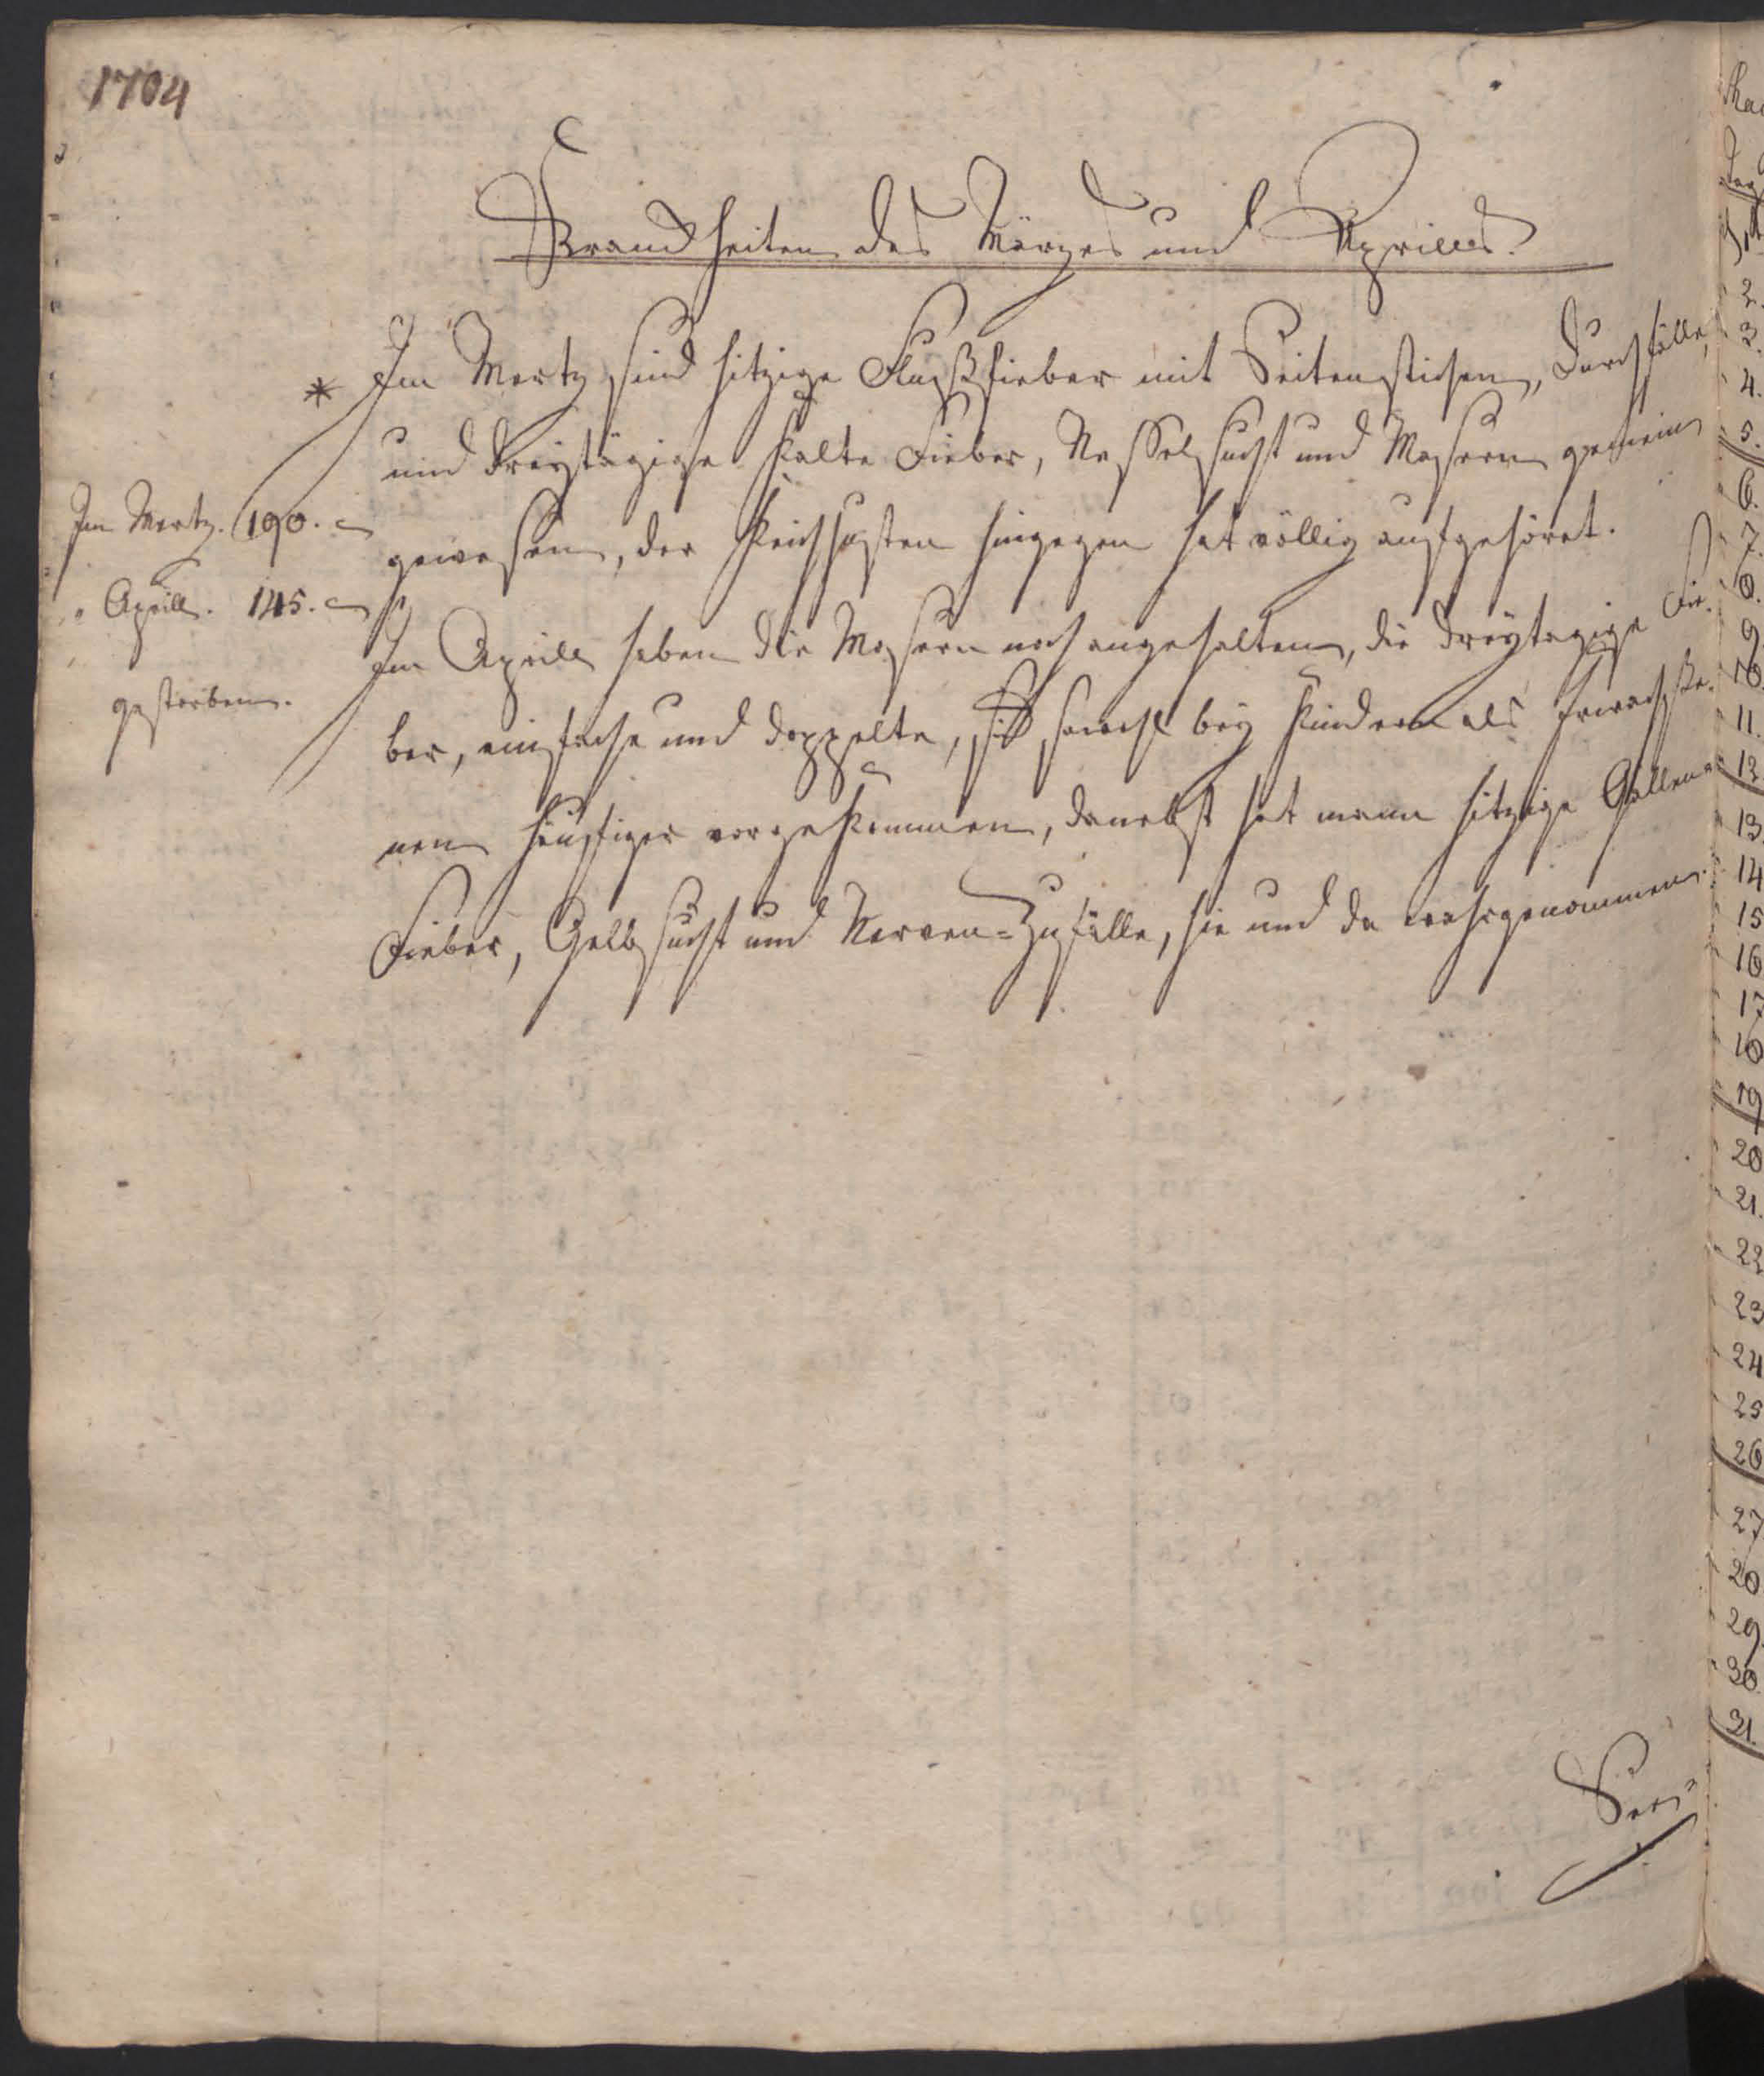 1784
Kranckheiten des Märzes und Aprills.
* Im Mertz sind hitzige Flußfieber mit Seitenstichen, Durchfälle,
und dreytägige kalte Fieber, Nesselsucht und Masern gemein
gewesen, der Keichhusten hingegen hat völlig aufgehöret.
Im Aprill haben die Masern noch angehalten, die dreytägige Fie-
ber, einfache und doppelte, sind sowohl bey Kindern als Erwachße-
nen häuffiger vorgekommen, danebst hat mann hitzige Gallen-
Fieber, Gelbsucht und Nerven-Zufälle, hie und da wahrgenommen.
Im Mertz. 190.
" Aprill. 145.
gestorben.
2.
3.
4.
5.
6.
7.
8.
9.
10.
11.
12.
13.
14
15
16
17
18
19
20
21.
22
23
24
25
26
27
28
29.
30.
31.